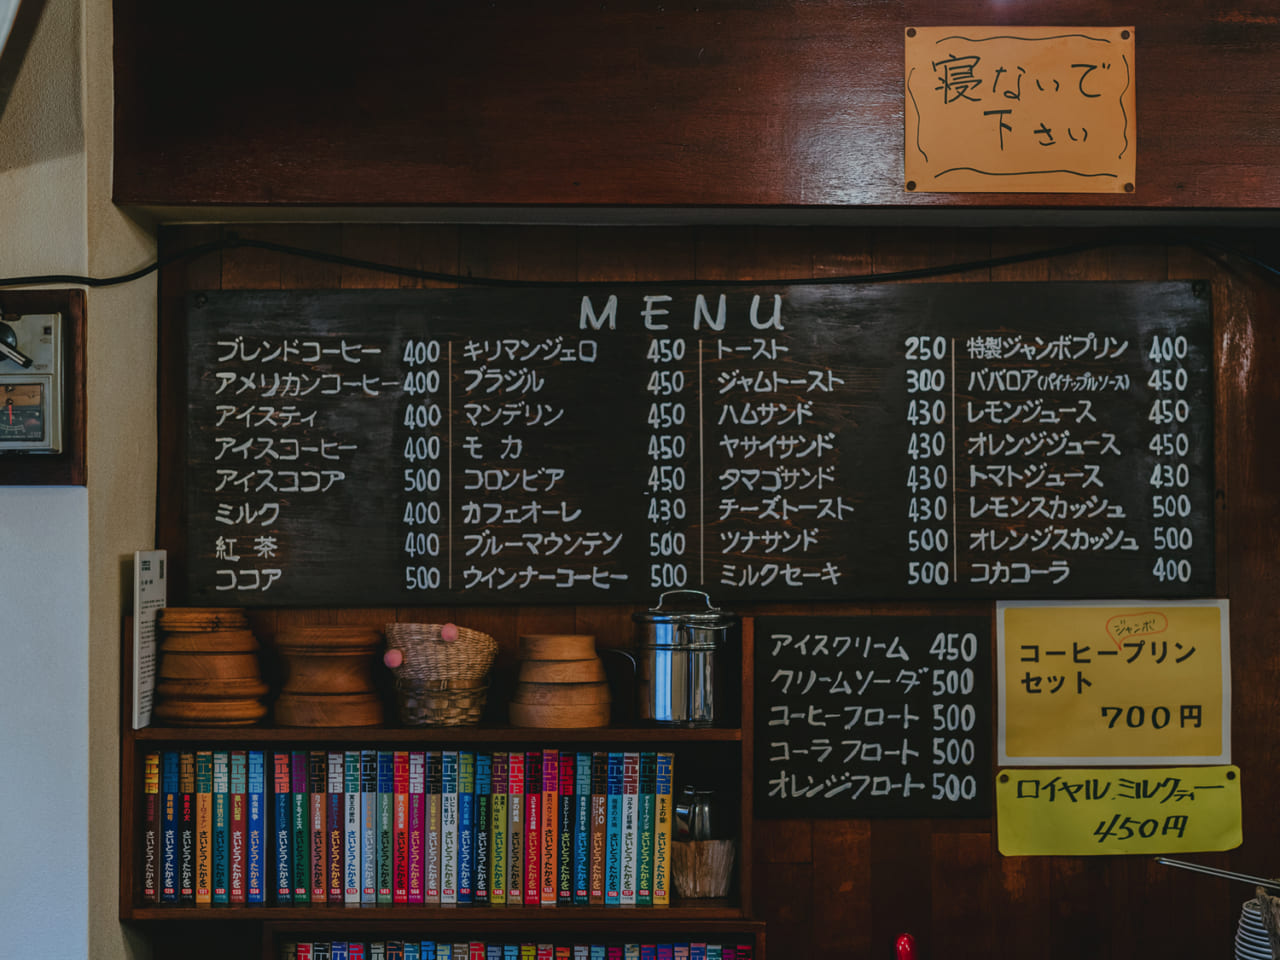 寝ないで
下さい
MENU
ブレンドコーヒー 400
アメリカンコーヒー 400
アイスティ 400
アイスコーヒー 400
アイスココア 500
ミルク 400
紅茶 400
ココア 500
キリマンジェロ 450
ブラジル 450
マンデリン 450
モカ 450
コロンビア 450
カフェオーレ 430
ブルーマウンテン 500
ウインナーコーヒー 500
トースト 250
ジャムトースト 300
ハムサンド 430
ヤサイサンド 430
タマゴサンド 430
チーズトースト 430
ツナサンド 500
ミルクセーキ 500
特製ジャンボプリン 400
ババロア(パイナップルソース) 450
レモンジュース 450
オレンジジュース 450
トマトジュース 430
レモンスカッシュ 500
オレンジスカッシュ 500
コカコーラ 400
アイスクリーム 450
クリームソーダ 500
コーヒーフロート 500
コーラフロート 500
オレンジフロート 500
ジャンボ
コーヒープリン
セット
700円
ロイヤルミルクティー
450円
さいとう・たかを